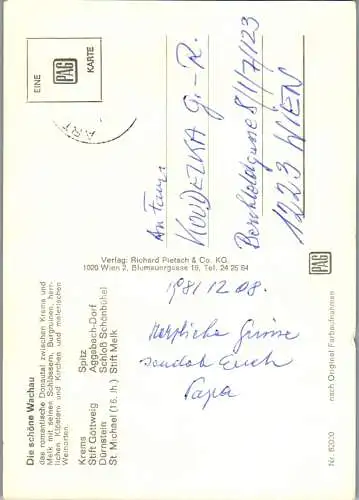 Die schöne Wachau
das romantische Donautal zwischen Krems und
Melk mit seinen Schlössern, Burgruinen, herr-
lichen Klöstern und Kirchen und malerischen
Weinorten.
Krems Spitz
Stift Göttweig Aggsbach-Dorf
Dürnstein Schloß Schönbühel
St. Michael (16. Jh.) Stift Melk
1981 12 08.
Herzliche Grüsse
sendet Euch
Papa
Nr. 8200 nach Original Farbaufnahmen
Verlag: Richard Pietsch & Co. KG.
1020 Wien 2, Blumauergasse 19, Tel. 24 25 64
EINE
PAG
KARTE
ART
An Fam.
KOUDELKA G.-R.
8/1/7/123
1223 WIEN
PAG